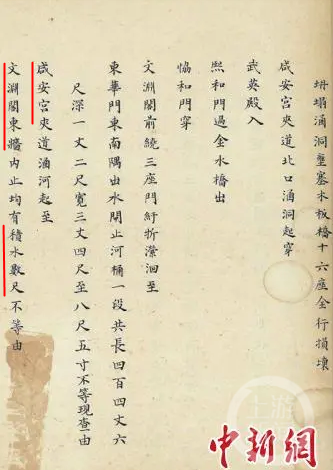 坍塌涵洞壅塞木板橋十六座全行損壞
咸安宮夾道北口涵洞起穿
武英殿入
熙和門過金水橋出
協和門穿
文淵閣前繞三座門紆折瀠洄至
東華門東南隅出水閘止河桶一段共長四百四丈六
尺深一丈二尺寬三丈四尺至八尺五寸不等現查由
咸安宮夾道涵河起至
文淵閣東牆內止均有積水數尺不等由
上游
中新網